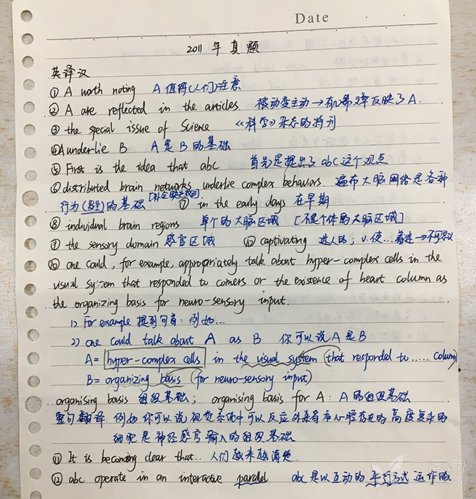 Date
2011 年真题
英译汉
① A worth noting A 值得(人们)注意
② A are reflected in the articles. 被动变主动→有n篇文章反映了A.
③ the special issue of Science 《科学》杂志的特刊
④ A underlie B A是B的基础
⑤ First is the idea that abc 首先是提出了abc这个观点
⑥ distributed brain networks underlie complex behaviors 遍布大脑网络是各种
行为(复杂)的基础 ⑦ in the early days 在早期
⑧ individual brain regions 单个的大脑区域 [不是个体的大脑区域]
⑨ the sensory domain 感官区域 ⑩ captivating 迷人的; v.使…着迷→
⑩ one could, for example, appropriately talk about hyper-complex cells in the
visual system that responded to corners or the existence of heart column as
the organizing basis for neuro-sensory input.
1) For example 提到句首: 例如...
2) one could talk about A as B 你可以说A是B
A= hyper-complex cells in the visual system (that responded to ...... column)
B= organizing basis (for neuro-sensory input)
organising basis 组织基础; organising basis for A: A的组织基础
整句翻译 例如你可以说视觉系统中可以反应 高度复杂的
细胞是神经感官输入的组织基础
⑪ It is becoming clear that... 人们越来越清楚
⑫ abc operate in an interactive parallel abc是以互动的平行方式运作的